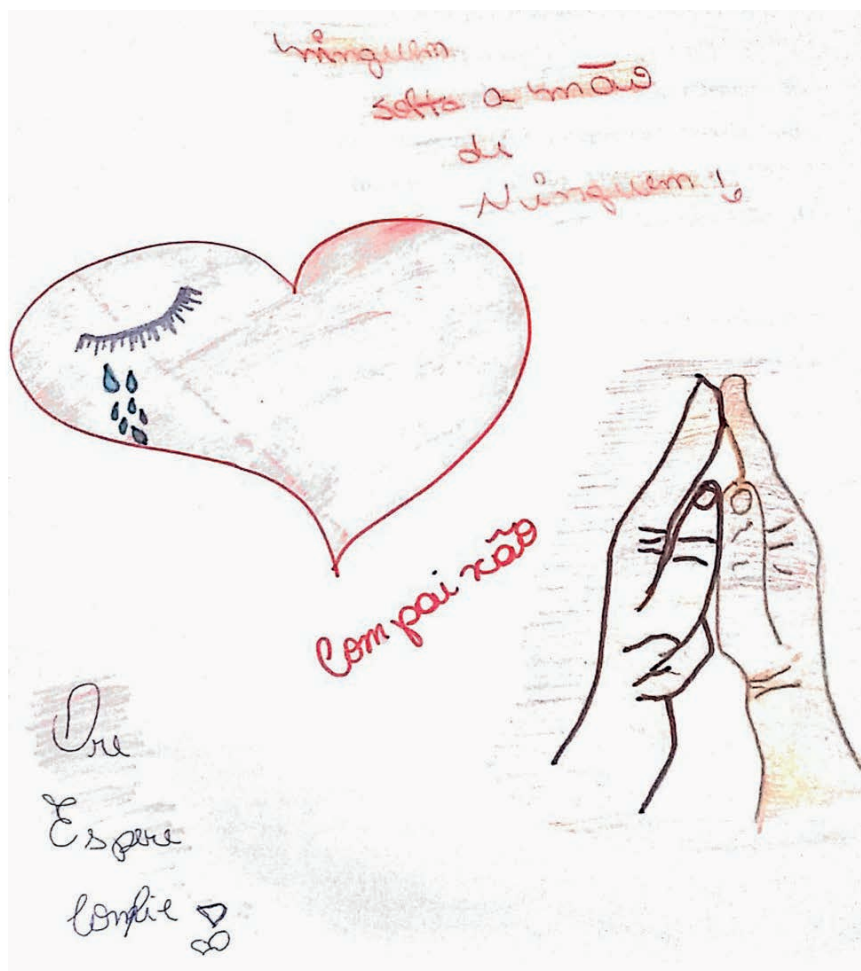 ninguem
solta a mão
de
Ninguem!
Compaixão
Ore
Espere
Confie